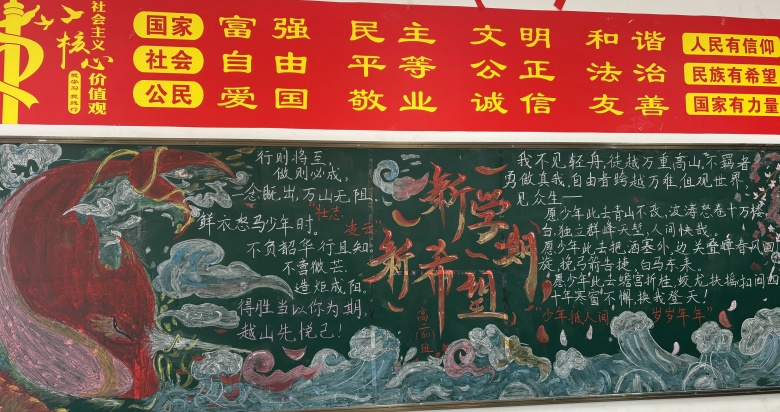 社会主义
核心
价值观
我学习 我践行
国家 富强 民主 文明 和谐 人民有信仰
社会 自由 平等 公正 法治 民族有希望
公民 爱国 敬业 诚信 友善 国家有力量
行则将至,
做则必成,
念既出,万山无阻。
壮志
凌云
鲜衣怒马少年时。
不负韶华行且知
不啻微芒
造炬成阳。
得胜当以你为期,
越山先悦己!
新学期
新希望
我不见轻舟,徒越万重高山,不羁者
勇做真我,自由者跨越万难,但观世界,
见众生——
愿少年此去青山不改,波涛怒卷千万楼
台,独立群峰天堑,人间快哉。
愿少年此去把酒塞外,边关叠峰春风回
旋,挽弓箭告捷,白马东来。
愿少年此去蟾宫折桂,蛟龙扶摇
十年寒窗不懈,换我登天!
"少年抵人间 岁岁年年"